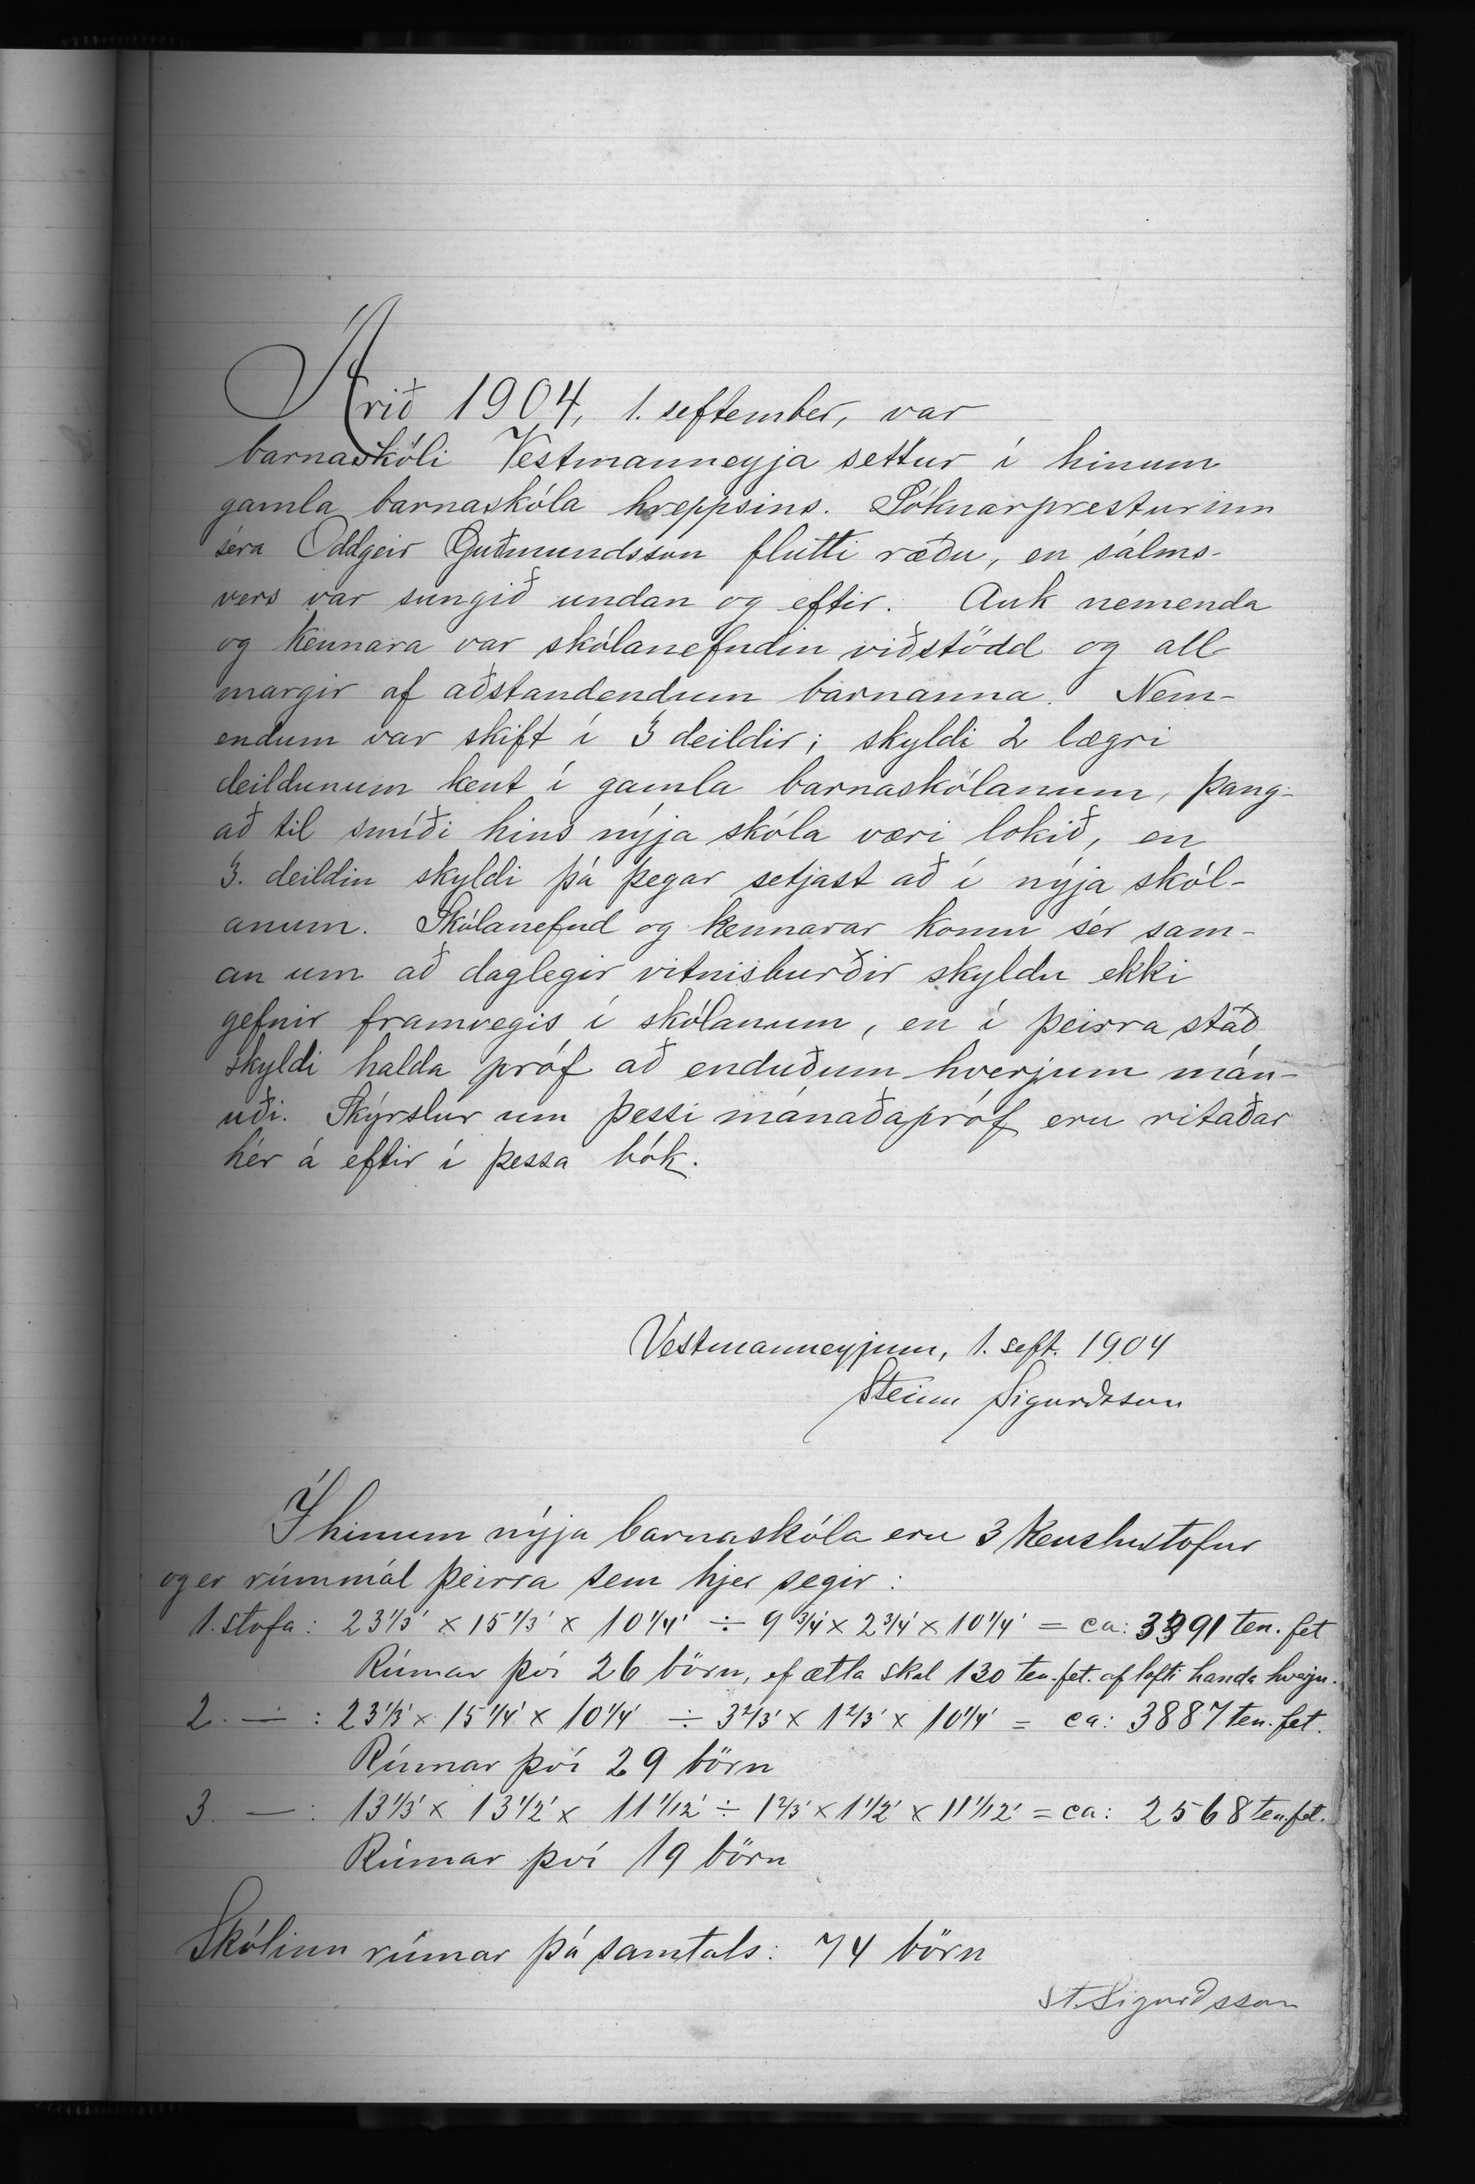 Árið 1904, 1. september, var
barnaskóli Vestmanneyja settur í hinum
gamla barnaskóla hreppsins. Sóknarpresturinn
séra Oddgeir Guðmundsson flutti ræðu, en sálms-
vers var sungið undan og eftir. Auk nemenda
og kennara var skólanefndin viðstödd og all
margir af aðstandendum barnanna. Nem-
endum var skift í 3 deildir; skyldi 2 lægri
deildunum kent í gamla barnaskólanum, þang-
að til smíði hins nýja skóla væri lokið, en
3. deildin skyldi þá þegar setjast að í nýja skól-
anum. Skólanefnd og kennarar komu sér sam-
an um að daglegir vitnisburðir skyldu ekki
gefnir framvegis í skólanum, en í þeirra stað
skyldi halda próf að enduðum hverjum mán-
uði. Skýrslur um þessi mánaðapróf eru ritaðar
hér á eftir í þessa bók.
Vestmanneyjum, 1. sept. 1904
Steinn Sigurðsson
Í hinum nýja barnaskóla eru 3 kenslustofur
og er rúmmál þeirra sem hjer segir:
1. stofa: 23 1/3' × 15 1/3' × 10 1/4' ÷ 9 3/4' × 2 3/4' × 10 1/4' = ca: 3391 ten. fet
Rúmar því 26 börn, ef ætla skal 130 ten. fet. af lofti handa hverju.
2. — : 23 1/3' × 15 1/4' × 10 1/4' ÷ 3 2/3' × 1 2/3' × 10 1/4' = ca: 3887 ten. fet.
Rúmar því 29 börn
3. — : 13 1/3' × 13 1/2' × 11 1/12' ÷ 1 2/3' × 1 1/2' × 11 1/12' = ca: 2568 ten. fet.
Rúmar því 19 börn
Skólinn rúmar þá samtals: 74 börn
St. Sigurðsson